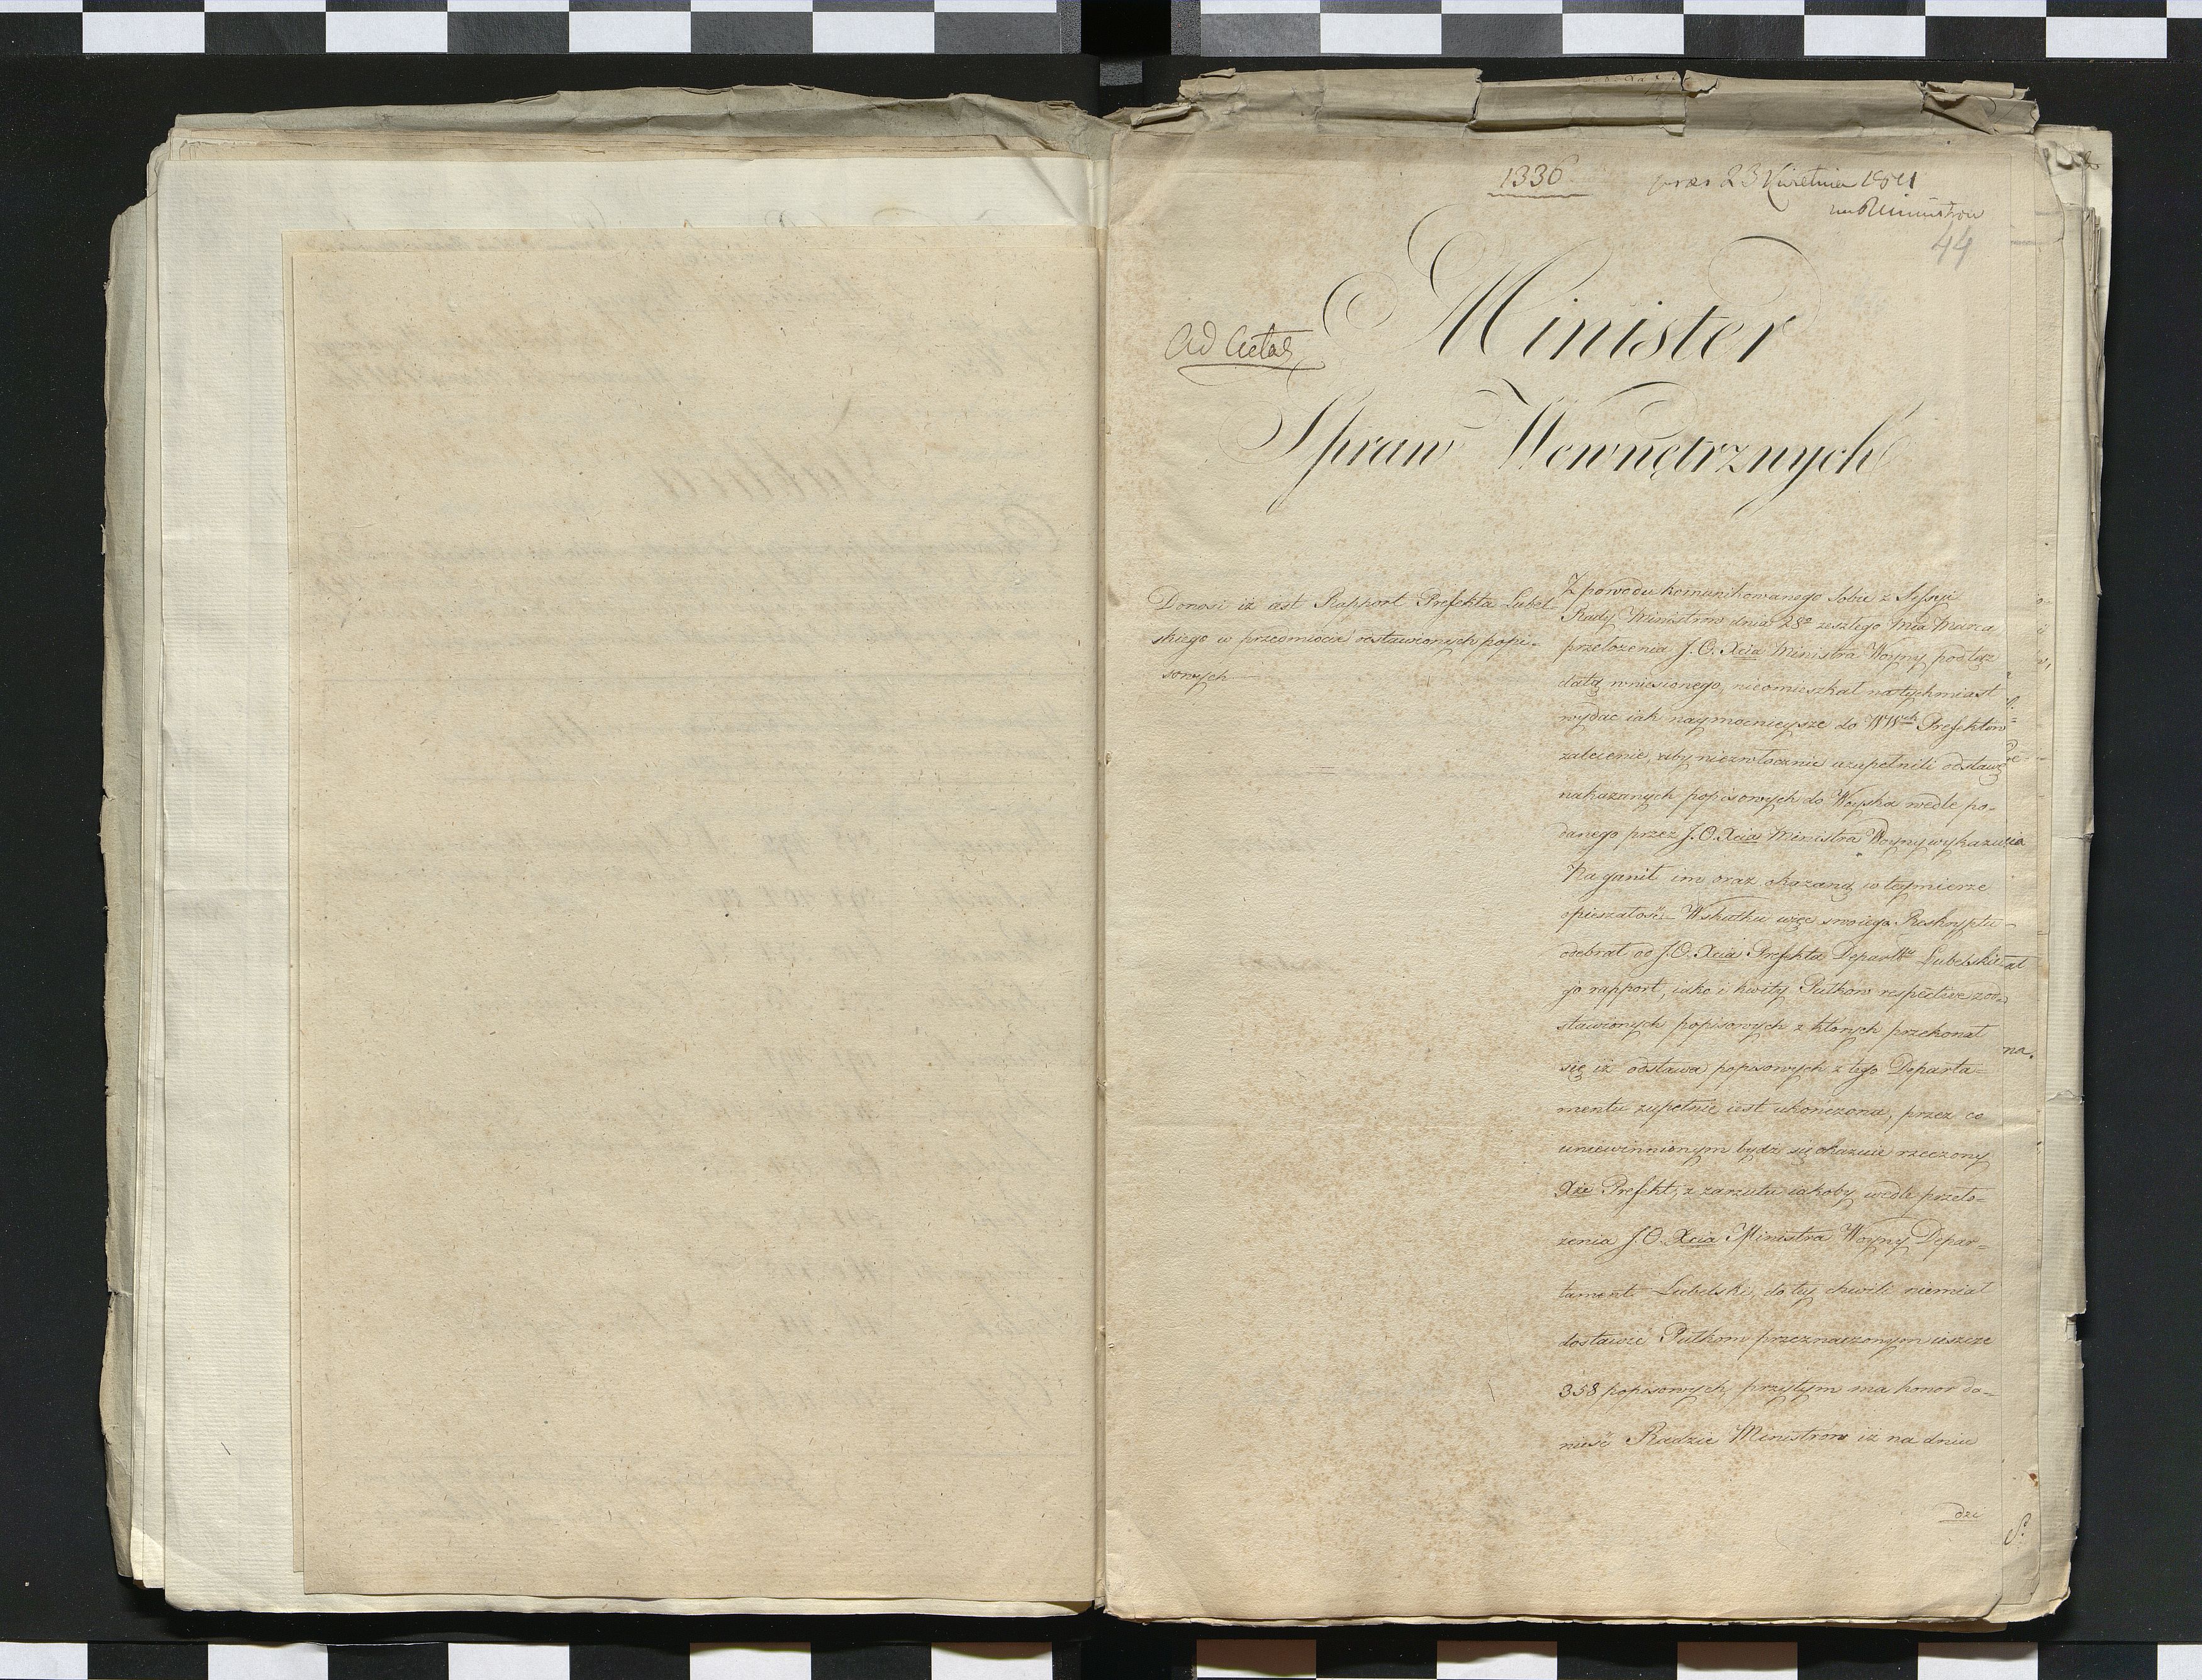 1336
præs 23 Kwietnia 1811
44
Ad Acta
Minister
Spraw Wewnętrznych
Donosi iż iest Rapport Prefekta Lubel-
skiego w przedmiocie odstawionych popi-
sowych
Z powodu komunikowanego Sobie z Sessyi
Rady Ministrow dnia 28º zeszłego Mca Marca
przełożenia J. O. Xcia Ministra Woyny pod tąż
datą wniesionego, nieomieszkał natychmiast
wydać iak naymocnieysze do WWch Prefektow
zalecenie, aby niezwłocznie uzupełnili odstawę
nakazanych popisowych do Woyska wedle po-
danego przez J. O. Xcia Ministra Woyny wykazu
Naganił im oraz okazaną w tey mierze
opieszałość – W skutku więc swoiego Reskryptu
odebrał od J. O. Xcia Prefekta Departtu Lubelskie-
go rapport, iako i kwity Pułkow respective z od-
stawionych popisowych z ktorych przekonał
się iż odstawa popisowych z tego Departa-
mentu zupełnie iest ukończona, przez co
uniewinnionym bydź się okazuie rzeczony
Xże Prefekt, z zarzutu iakoby wedle przeło-
żenia J. O. Xcia Ministra Woyny Depar-
tament Lubelski, do tey chwili niemiał
dostawić Pułkom przeznaczonym ieszcze
358 popisowych, przytym ma honor do-
nieść Radzie Ministrow iż na dniu
dzi